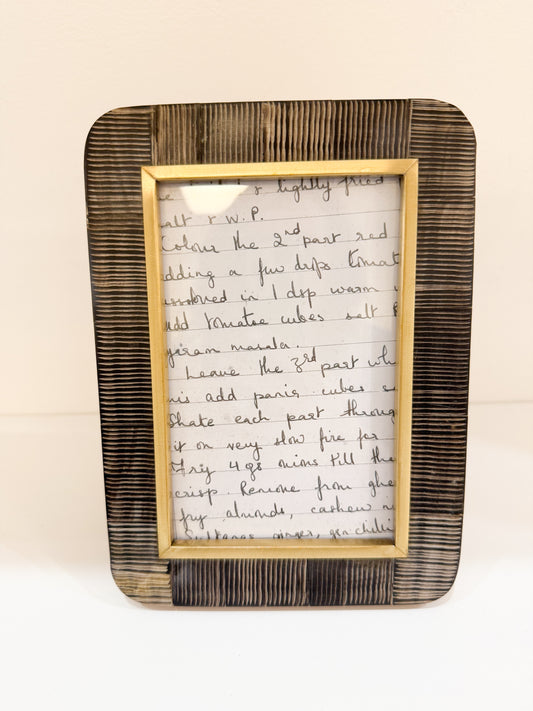 & lightly fried
alt & W.P.
Colour the 2nd part red
dding a few drops tomat
ssolved in 1 dsp warm
add tomatoe cubes salt
garam masala.
Leave the 3rd part whi
add panir cubes
Shate each part throug
it on very slow fire for
Frig 4 gs mins till the
crisp. Remove from ghe
fry almonds, cashew n
Sultanas ginger, gen chili